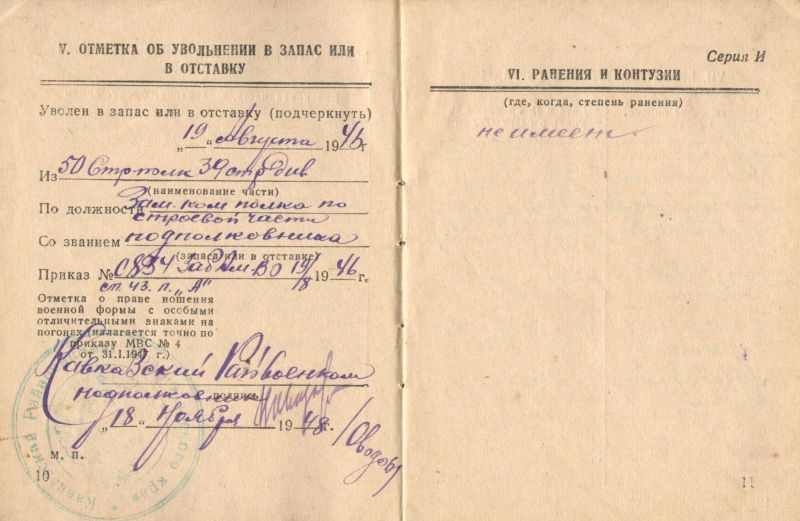 V. ОТМЕТКА ОБ УВОЛЬНЕНИИ В ЗАПАС ИЛИ
В ОТСТАВКУ
Уволен в запас или в отставку (подчеркнуть)
„19“ августа 1946 г
Из 50 Стр полк 39 стр див
(наименование части)
По должности Зам. ком полка по
строевой части
Со званием подполковника
(запаса или в отставке)
Приказ № 0834 ЗабАмВО 19/8 1946 г.
ст. 43. п. „А“
Отметка о праве ношения
военной формы с особыми
отличительными знаками на
погонах (излагается точно по
приказу МВС № 4
от 31.I.1947 г.)
Кавказский Райвоенком
подполковник
подпись
„18“ Ноября 1948 г
м. п.
10
Серия И
VI. РАНЕНИЯ И КОНТУЗИИ
(где, когда, степень ранения)
не имеет.
11